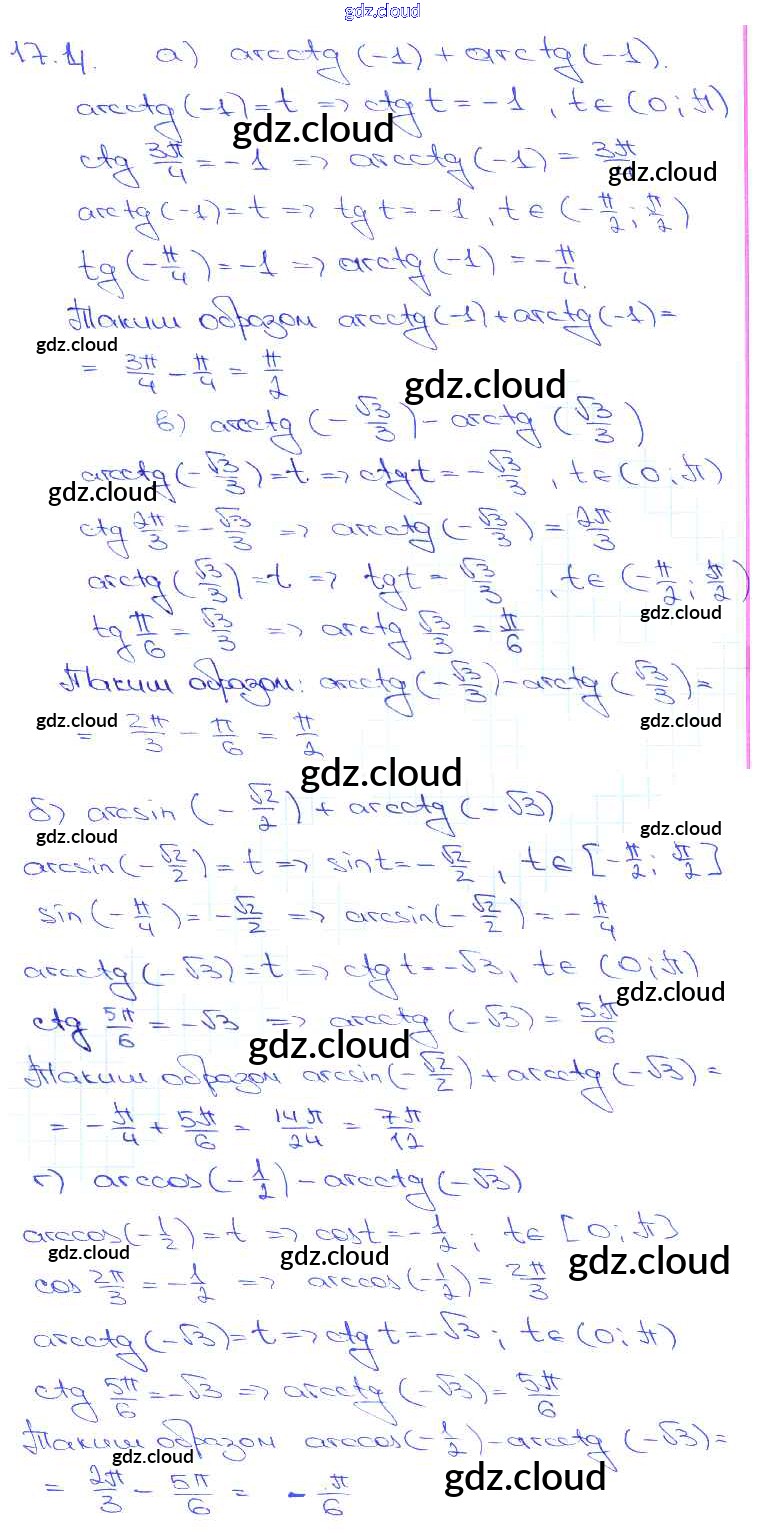 gdz.cloud
17.14. а) arcctg(-1) + arctg(-1).
arcctg(-1) = t => ctg t = -1, t ∈ (0; π)
gdz.cloud
ctg 3π/4 = -1 => arcctg(-1) = 3π/4
gdz.cloud
arctg(-1) = t => tg t = -1, t ∈ (-π/2; π/2)
tg(-π/4) = -1 => arctg(-1) = -π/4.
Таким образом arcctg(-1) + arctg(-1) =
gdz.cloud
= 3π/4 - π/4 = π/2
gdz.cloud
в) arcctg(-√3/3) - arctg(√3/3)
arcctg(-√3/3) = t. => ctg t = -√3/3, t ∈ (0; π)
gdz.cloud
ctg 2π/3 = -√3/3 => arcctg(-√3/3) = 2π/3
arctg(√3/3) = t => tg t = √3/3, t ∈ (-π/2; π/2)
gdz.cloud
tg π/6 = √3/3 => arctg √3/3 = π/6
Таким образом: arcctg(-√3/3) - arctg(√3/3) =
gdz.cloud gdz.cloud
= 2π/3 - π/6 = π/2
gdz.cloud
б) arcsin(-√2/2) + arcctg(-√3)
gdz.cloud gdz.cloud
arcsin(-√2/2) = t => sin t = -√2/2, t ∈ [-π/2; π/2]
sin(-π/4) = -√2/2 => arcsin(-√2/2) = -π/4
arcctg(-√3) = t => ctg t = -√3, t ∈ (0; π)
gdz.cloud
ctg 5π/6 = -√3 => arcctg(-√3) = 5π/6
gdz.cloud
Таким образом arcsin(-√2/2) + arcctg(-√3) =
= -π/4 + 5π/6 = 14π/24 = 7π/12
г) arccos(-1/2) - arcctg(-√3)
arccos(-1/2) = t => cos t = -1/2; t ∈ [0; π]
gdz.cloud gdz.cloud gdz.cloud
cos 2π/3 = -1/2 => arccos(-1/2) = 2π/3
arcctg(-√3) = t => ctg t = -√3; t ∈ (0; π)
ctg 5π/6 = -√3 => arcctg(-√3) = 5π/6
Таким образом arccos(-1/2) - arcctg(-√3) =
gdz.cloud gdz.cloud
= 2π/3 - 5π/6 = -π/6